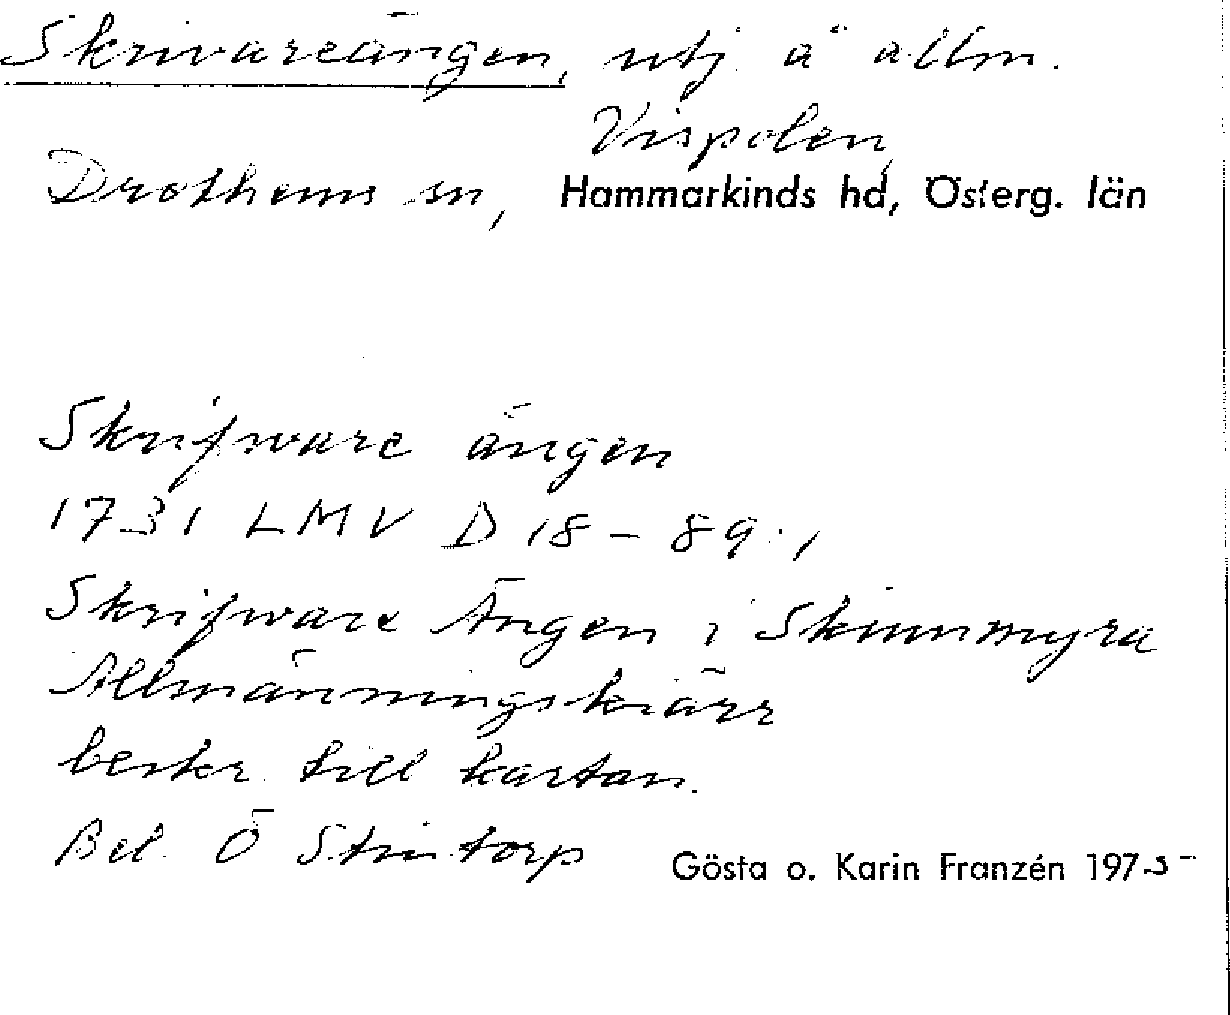 Skrivareängen, utj. å allm.
Vispolen,
Drothems sn, Hammarkinds hd, Österg. län
Skrifware ängen
1731 LMV D 18-89:1
Skrifware Ängen i Skinnmyra
Allmänningskiärr
beskr. till kartan.
Bel. Ö Stintorp
Gösta o. Karin Franzén 1975